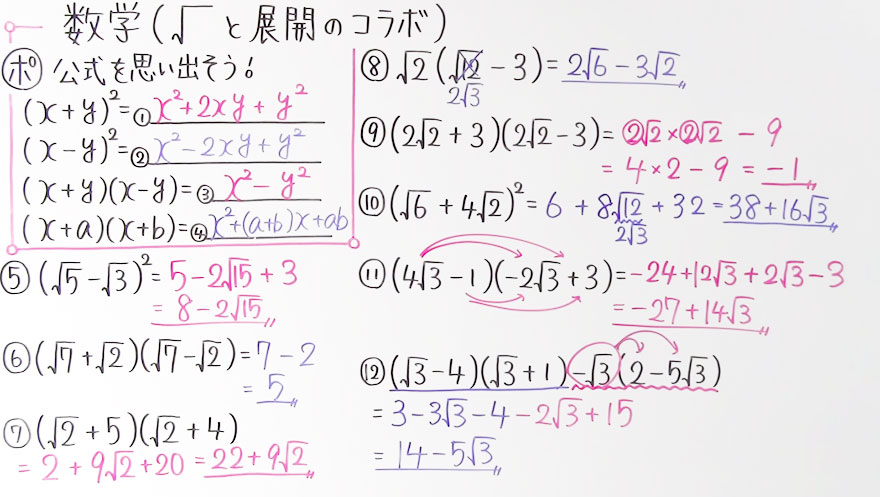 数学(√ と展開のコラボ)
ポ 公式を思い出そう!
(x+y)²=①x²+2xy+y²
(x-y)²=②x²-2xy+y²
(x+y)(x-y)=③x²-y²
(x+a)(x+b)=④x²+(a+b)x+ab
⑤(√5-√3)²=5-2√15+3
=8-2√15
⑥(√7+√2)(√7-√2)=7-2
=5
⑦(√2+5)(√2+4)
=2+9√2+20=22+9√2
⑧√2(√12-3)=2√6-3√2
2√3
⑨(2√2+3)(2√2-3)=2√2×2√2-9
=4×2-9=-1
⑩(√6+4√2)²=6+8√12+32=38+16√3
2√3
⑪(4√3-1)(-2√3+3)=-24+12√3+2√3-3
=-27+14√3
⑫(√3-4)(√3+1)-√3(2-5√3)
=3-3√3-4-2√3+15
=14-5√3